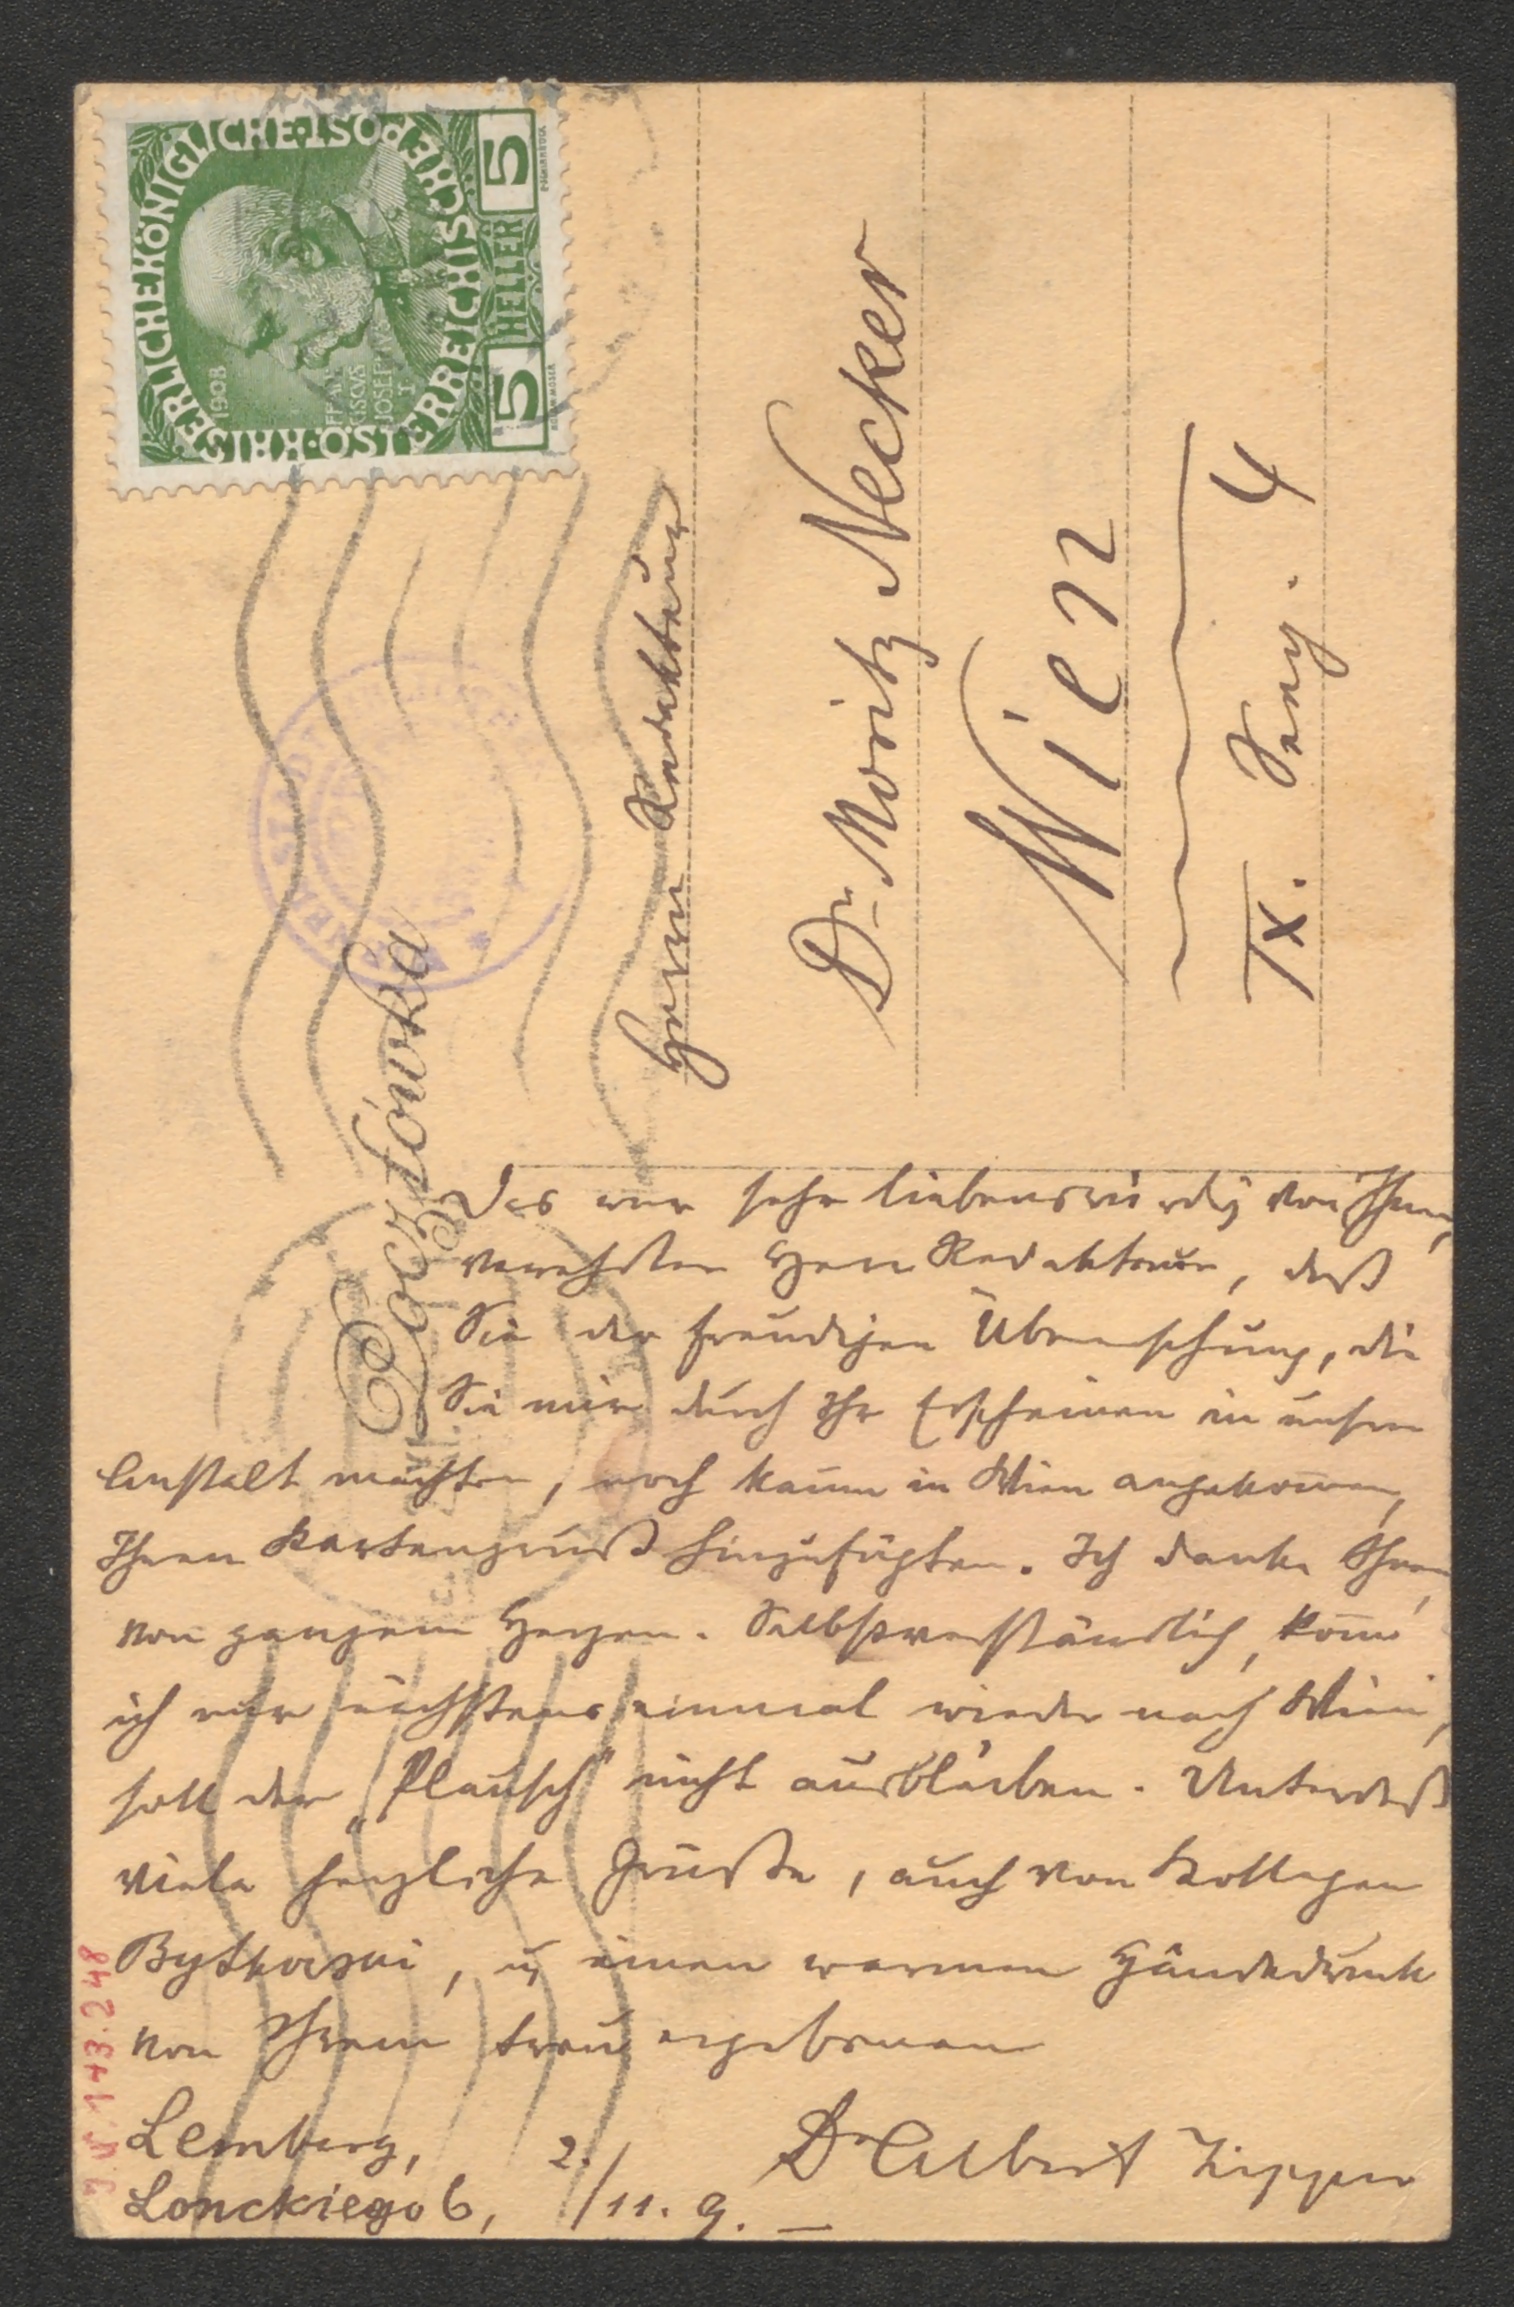 KAISERLICHE KÖNIGLICHE ÖSTERREICHISCHE POST
1908
FRANCISCVS JOSEPH I
5 HELLER 5
Pocztówka
Herrn Redakteur
Dr Moritz Necker
Wien
IX. 4
Das war sehr liebenswürdig von Ihnen,
verehrter Herr Redakteur, daß
Sie der freudigen Überraschung, die
Sie mir durch Ihr Erscheinen in unserer
Anstalt machten, noch kaum in Wien angekommen,
Ihren Kartengruß hinzufügten. Ich danke Ihnen
von ganzem Herzen. Selbstverständlich, komme
ich nur nächstens einmal wieder nach Wien,
soll der „Plausch“ nicht ausbleiben. Unterdeß
viele herzliche Grüße, auch von Kollegen
Bytkowski, u. einen warmen Händedruck
von Ihrem treu ergebenen
Dr Albert Zipper
Lemberg,
Lonckiego 6, 2./11. 9. –